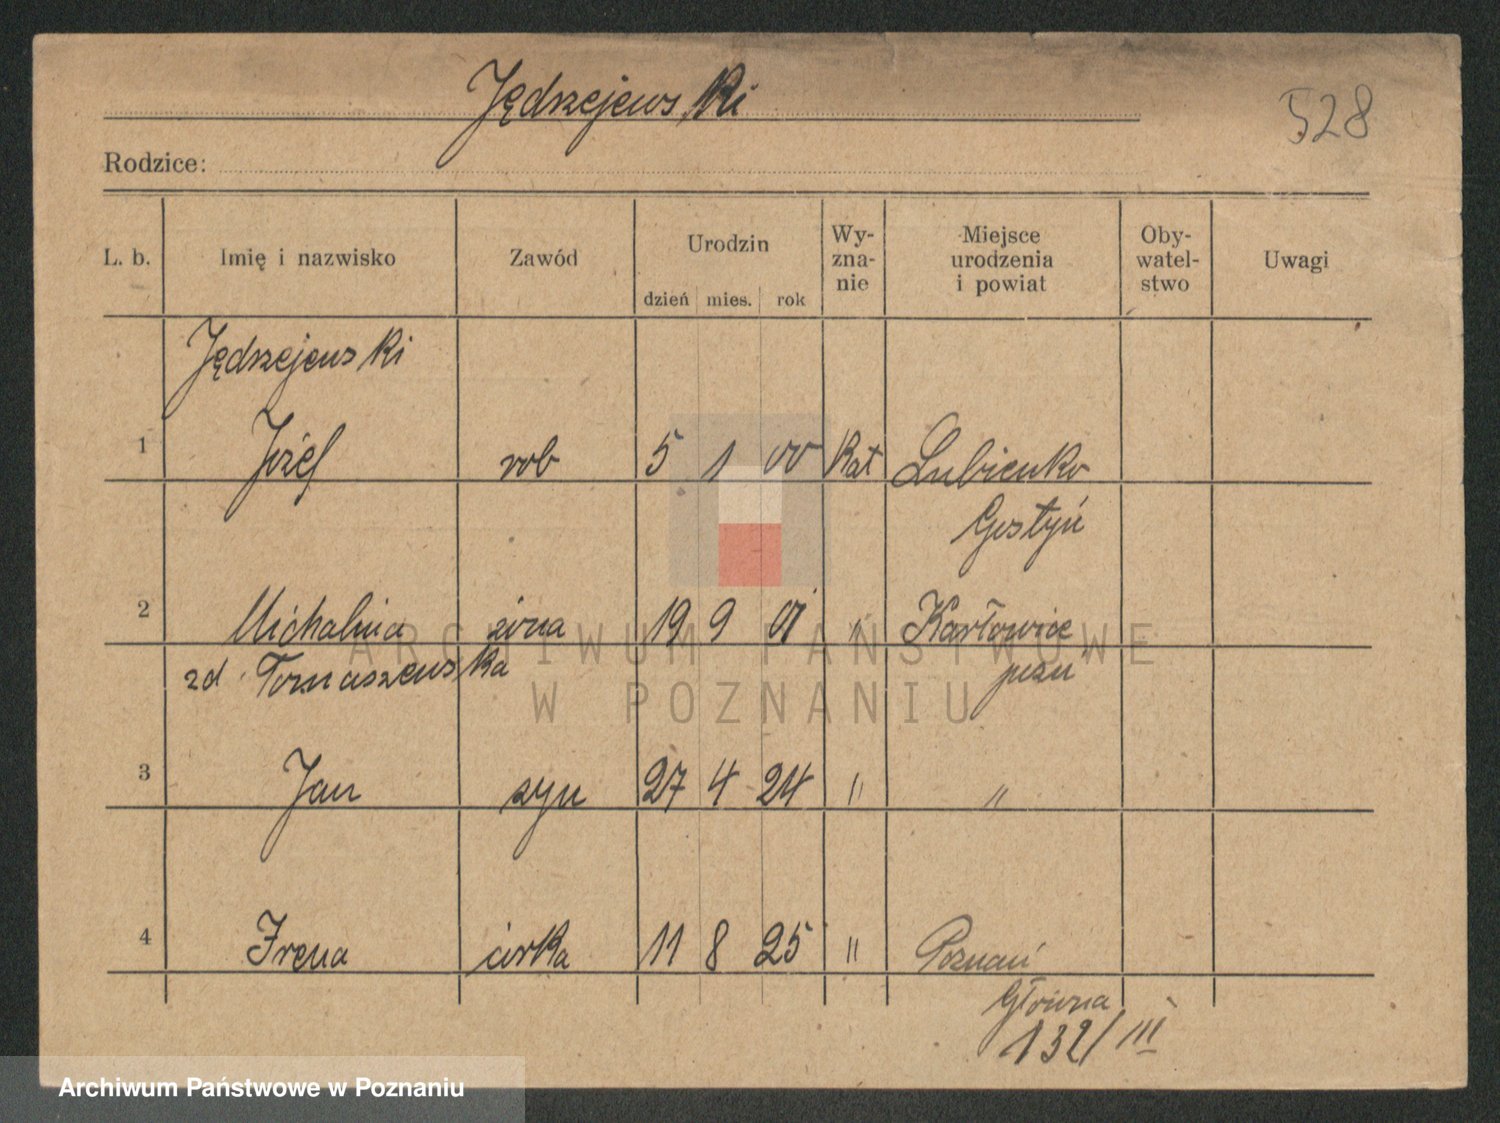 Jędrzejewski
528
Rodzice:
L. b. Imię i nazwisko Zawód Urodzin dzień mies. rok Wy-zna-nie Miejsce urodzenia i powiat Oby-watel-stwo Uwagi
Jędrzejewski
1 Józef rob 5 1 00 Kat Lubieńko
Gostyń
2 Michalina żona 19 9 01 " Karłowice
zd. Tomaszewska pozn
3 Jan syn 27 4 24 " "
4 Irena córka 11 8 25 " Poznań
Główna
132/III
ARCHIWUM PAŃSTWOWE
W POZNANIU
Archiwum Państwowe w Poznaniu